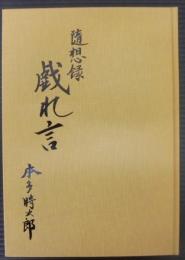 随想録
戯れ言
本多時太郎